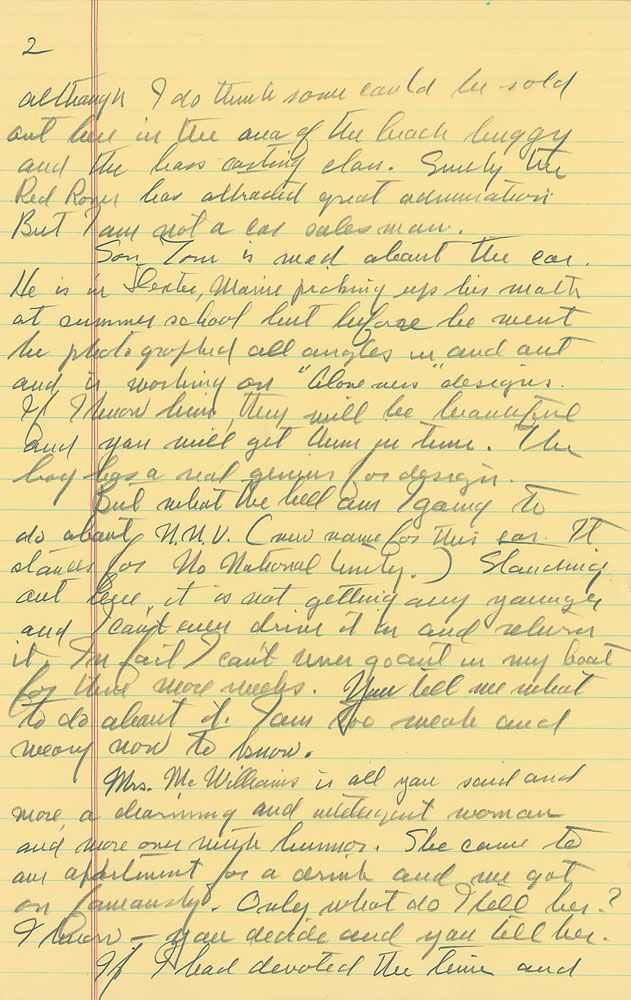 2
although I do think some could be sold
out here in the area of the beach buggy
and the bass casting clan. Surely the
Red Rover has attracted great admiration
But I am not a car salesman.
Son Tom is mad about the car.
He is in Dexter, Maine picking up his math
at summer school but before he went
he photographed all angles in and out
and is working on designs.
If I know him, they will be beautiful
and you will get them in time. The
boy has a real genius for design.
But what the hell am I going to
do about N.N.U. (new name for this car. It
stands for No National Unity.) Standing
out here it is not getting any younger
and I can't even drive it in and return
it. In fait I can't even go out in my boat
for three more weeks. You tell me what
to do about it. I am too weak and
weary now to know.
Mrs. McWilliams is all you said and
more a charming and inteligent woman
and more over with humor. She came to
our apartment for a drink and we got
on famously. Only what do I tell her?
I know — you decide and you tell her.
If I had devoted the time and